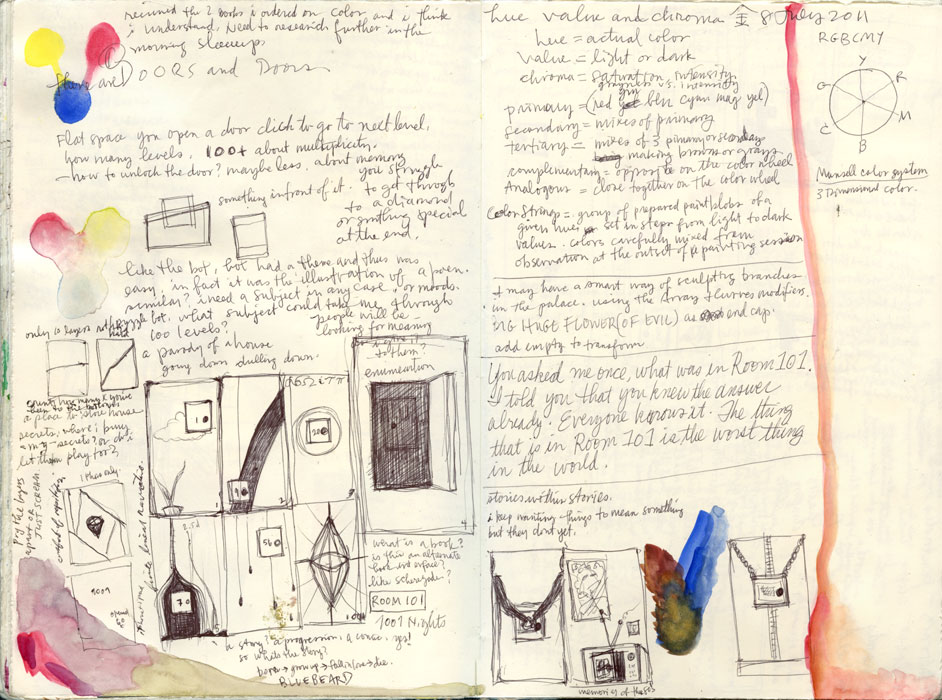 received the 2 books i ordered on color and i think
i understand. Need to research further in the
morning
there are DOORS and Doors
Flat space you open a door click to go to next level,
how many levels, 100+ about multiplicity.
how to unlock the door? maybe less. about memory
you struggle
to get through
to a diamond
or smthing special
at the end.
something in front of it.
like the bot, bot had a theme and thus was
easy, in fact it was the illustration of a poem.
similar? i need a subject in any case, or moods.
bot. what subject could take me through
100 levels?
people will be
looking for meaning
to them?
a parody of a house
going down dulling down.
only 12 layers
enumeration
count how many x you've
a place to store house
secrets, where i bury
my secrets? or do i
let them play for 2
1 thru only
2.5d
10
20
56
70
1
2
3
4
1001
what is a book?
is this an alternate
book out surface?
like
ROOM 101
1001 Nights
a story? a progression, a course, yes!
so what's the story?
born → grow up → fall in love → die.
BLUEBEARD
hue value and chroma 金 8 July 2011
hue = actual color
value = light or dark
chroma = saturation, intensity,
grayness vs. intensity
primary = (red blu cyan mag yel)
secondary = mixes of primary
tertiary = mixes of 3 primary or secondary
making browns or grays
complementary = opposite on the color wheel
Analogous = close together on the color wheel
Color Strings = group of prepared paint blobs of a
given hue set in steps from light to dark
values. colors carefully mixed from
observation at the outset of a painting session
I may have a smart way of sculpting branches
in the palace. using the Array + curves modifiers.
BIG HUGE FLOWER (OF EVIL) as end cap.
add empty to transform
You asked me once, what was in Room 101.
I told you that you knew the answer
already. Everyone knows it. The thing
that is in Room 101 is the worst thing
in the world.
stories within stories.
i keep wanting things to mean something
but they dont yet.
memories of the 80s
RGBCMY
Y
R
M
B
C
G
Munsell color system
3 Dimensional color.